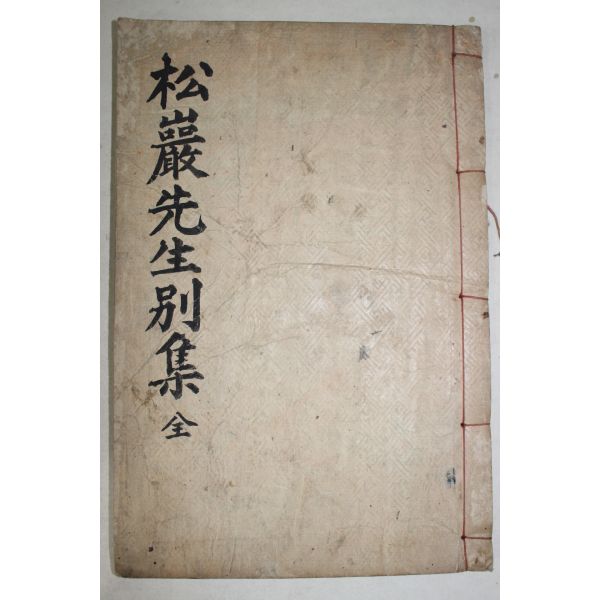 松巖先生別集 全